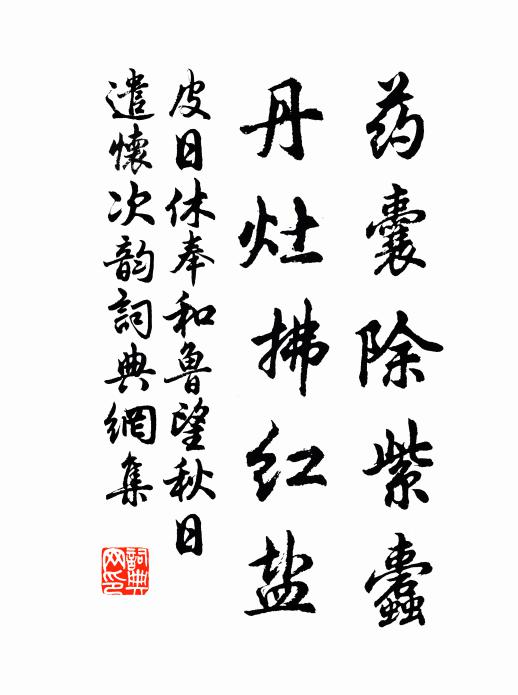 药囊除紫蠹
丹灶拂红盐
皮日休奉和鲁望秋日
遣懷次韵詞典網集
詞典网印